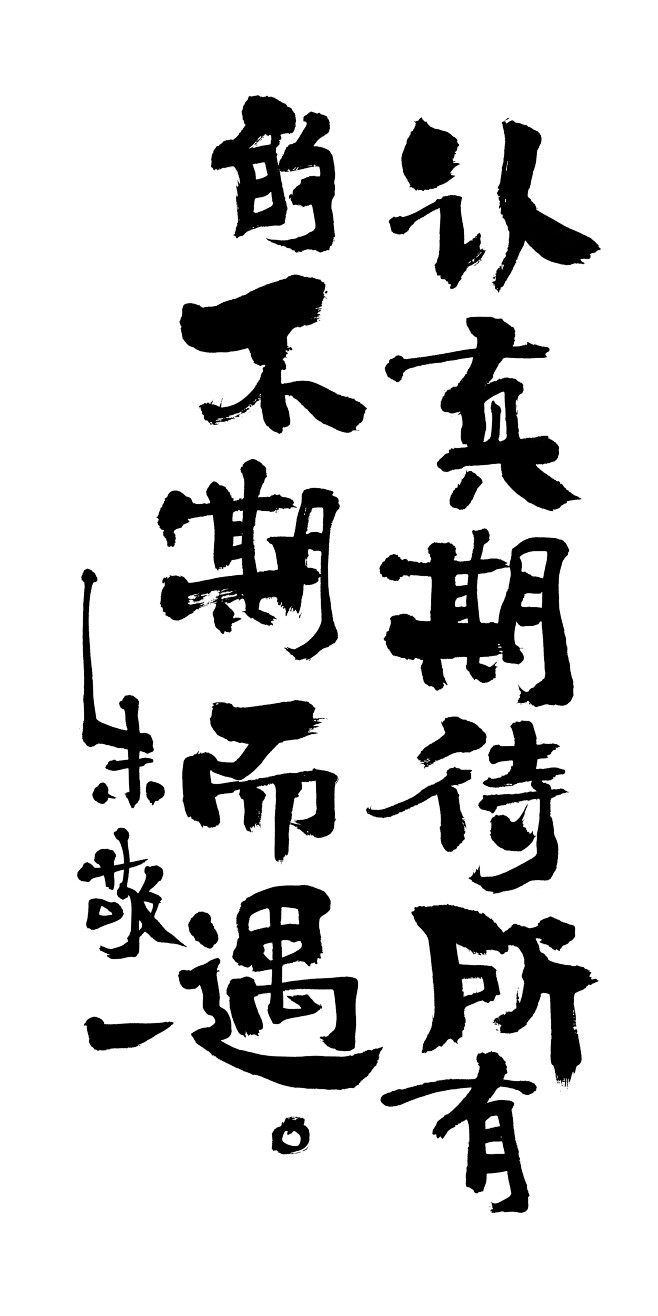 认真期待所有
的不期而遇。
朱敬一